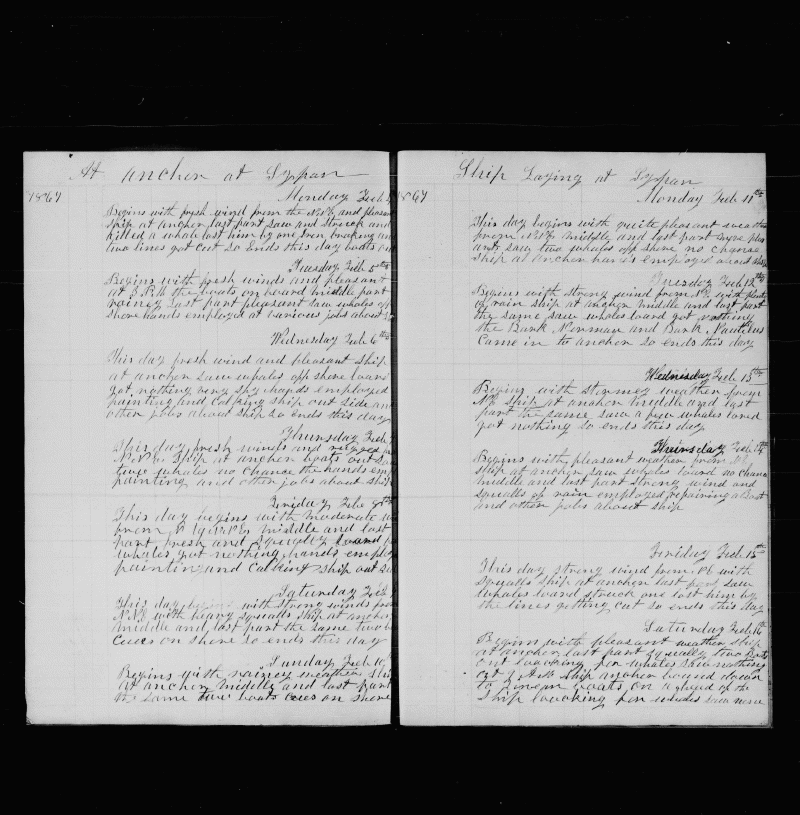 At anchor at Sypan
1867
Monday Feb
Begins with fresh wind from the NNE and pleasant
ship at anchor last part saw and struck and
killed a whale lost him by one Iron braking and
two lines got cut so Ends this day boats
Tuesday Feb 5th
Begins with fresh winds and pleasant
at 3 P.M. the boats on board middle part
rainey Last part pleasant saw whales of
shore hands employed at various jobs about
Wednesday Feb 6th
This day fresh wind and pleasant ship
at anchor saw whales off shore loard
got nothing very shy hands employed
painting and calking ship out side an
other jobs about ship so ends this day
Thursday Feb
This day fresh winds and
NNE Ship at anchor boats out
two whales no chance the hands em
painting and other jobs about ship
Friday Feb 8th
This day begins with moderate
from middle and last
part fresh and Squally loard
whales got nothing hands emplo
painting and Calking ship out si
Saturday Feb
This day begins with strong winds fro
NNE with heavy squalls ship at ancho
middle and last part the same two b
crews on shore so ends this day
Sunday Feb 10
Begins with rainey weather shi
at anchor middle and last part
the same two boats crews on shore
Ship Laying at Sypan
1867
Monday Feb 11th
This day begins with quite pleasant weath
from NNE middle and last part more ples
ant saw two whales off shore no chance
ship at anchor hands employed about ship
Tuesday Feb 12th
Begins with strong wind from NE with plenty
of rain ship at anchor middle and last part
the same saw whales loard got nothing
the Bark Norman and Bark Nautilus
came in to anchor so ends this day
Wednesday Feb 13th
Begins with stormey weather from
NE ship at anchor middle and last
part the same saw a few whales loard
got nothing so ends this day
Thursday Feb 14th
Begins with pleasant weather from NE
ship at anchor saw whales loard no chance
middle and last part strong wind and
squalls of rain employed repairing a Boat
and other jobs about ship
Friday Feb 15th
This day strong wind from NE with
squalls ship at anchor last part saw
whales loard struck one lost him by
the lines getting cut so ends this day
Saturday Feb 16th
Begins with pleasant weather ship
at anchor last part squally two Boats
out looking for whales saw nothing
at ship anchor boused down
to boats on a head of the
Ship looking for whales saw none